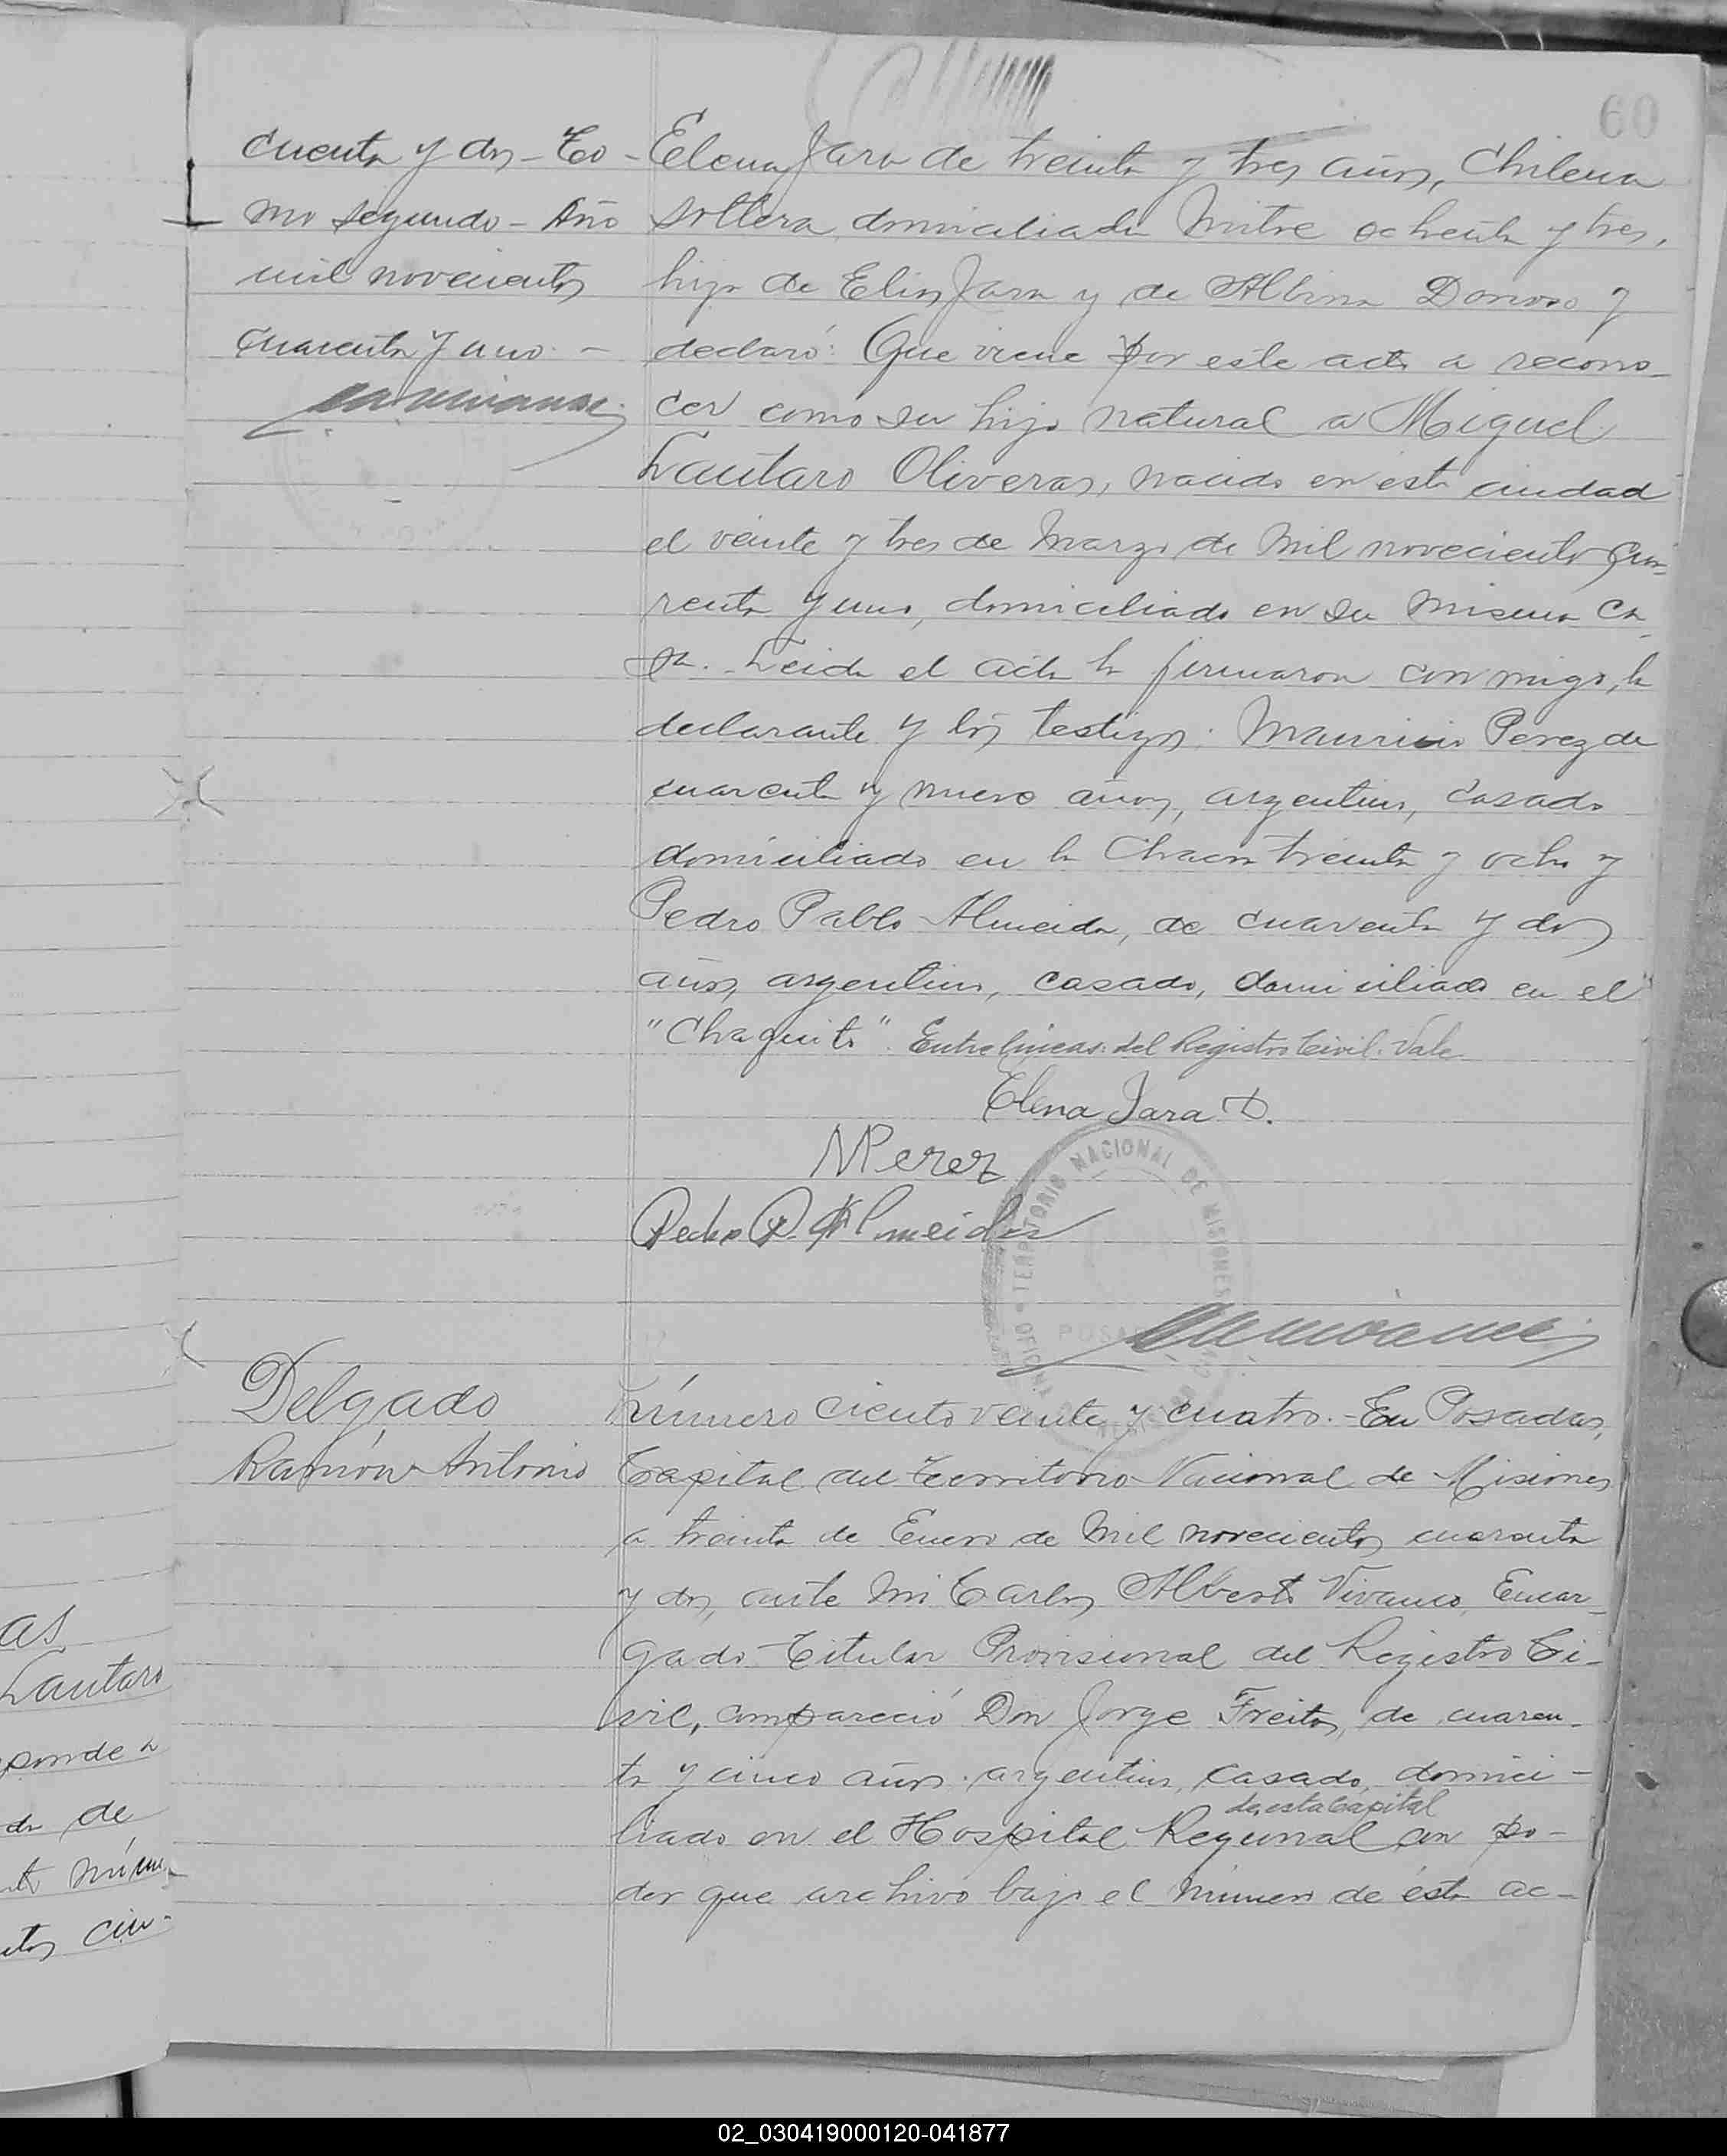 60
cuenta y dos - To-
mo segundo - Año
mil novecientos
cuarenta y uno. -
Elena Jara de treinta y tres años, Chilena
soltera domiciliada Mitre ochenta y tres,
hija de Elias Jara y de Albina Donoso y
declaró: Que viene por este acto a recono-
cer como su hijo natural a Miguel
Lautaro Oliveras, nacido en esta ciudad
el veinte y tres de Marzo de Mil novecientos cua-
renta y uno, domiciliado en su misma ca-
sa. Leida el acta la firmaron conmigo, la
declarante y los testigos: Mauricio Perez de
cuarenta y nueve años, argentino, casado
domiciliado en la Chacra treinta y ocho y
Pedro Pablo Almeida, de cuarenta y dos
años, argentino, casado, domiciliado en el
"Chaquito". Entre lineas: del Registro Civil. Vale
Elena Jara D.
MPerez
Pedro P. Almeida
TERRITORIO NACIONAL DE MISIONES
POSADAS
Delgado
Ramón Antonio
Número ciento veinte y cuatro. - En Posadas,
Capital del Territorio Nacional de Misiones
a treinta de Enero de Mil novecientos cuarenta
y dos, ante Mi Carlos Alberto Vivanco, Encar-
gado Titular Provisional del Registro Ci-
vil, compareció Don Jorge Freitas, de cuaren-
ta y cinco años. argentino, casado, domici-
de esta Capital
liado en el Hospital Regional con po-
der que archivo bajo el número de ésta ac-
as
Lautaro
ponde a
da de
núme-
cin-
02_030419000120-041877